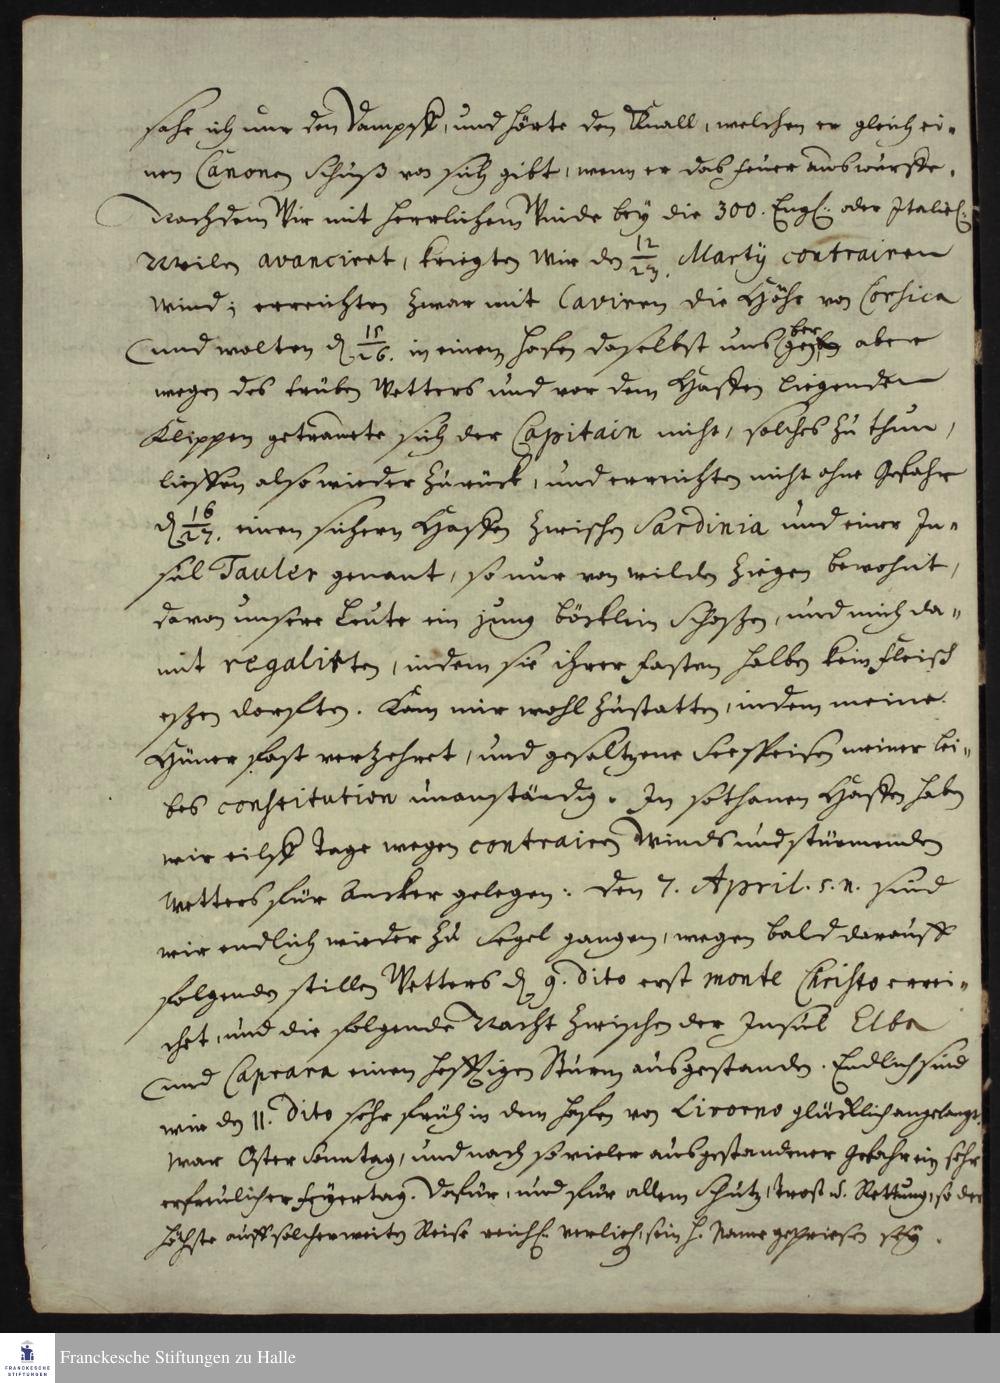 sahe ich nur den Dampff, und hörte den Knall, welchen er gleich ei-
nen Canonen Schuß von sich gibt, wenn er das feuer außwürffe.
Nachdem Wir mit herrlichem Winde bey die 300. Engl. oder Italien.
Meilen avanciret, kriegten Wir den 12/23. Martÿ contrairen
Wind; erreichten zwar mit Laviren die Höhe von Corsica
und wolten d. 15/26. in einem hafen daselbst uns bergen aber
wegen des trüben Wetters und vor dem Haffen liegenden
Klippen getrauete sich der Capitain nicht, solches zu thun,
lieffen also wieder zurück, und erreichten nicht ohne Gefahr
d. 16/27. einen sichern Haffen zwischen Sardinia und einer In-
sul Tauler genant, so nur von wilden Ziegen bewohnt,
davon unsere Leute ein jung böcklein schoßen, und mich da-
mit regalirten, indem sie ihrer fasten halben kein fleisch
eßen dorfften. Kam mir wohl zustatten, indem meine
Hüner fast verzehret, und gesaltzene Seespeisen meiner Lei-
bes constitution unanständig. In sothanen Haffen haben
wir eilff tage wegen contrairen Winds und stürmenden
Wetters für Ancker gelegen: den 7. April. s. n. sind
wir endlich wieder zu Segel gangen, wegen bald darauff
folgenden stillen Wetters d. 9. dito erst monte Christo errei-
chet, und die folgende Nacht zwischen der Insul Elba
und Caprara einen hefftigen Sturm ausgestanden. Endlich sind
wir den 11. Dito sehr früh in dem hafen von Livorno glücklich angelangt,
war Oster Sonntag, und nach so vieler ausgestandener Gefahr ein sehr
erfreulicher feyertag. Dafür, und für allem Schutz, trost u. Rettung, so der
Höchste auff solcher weiten Reise reichl. verliehen, sein h. Name gepriesen sey.
Franckesche Stiftungen zu Halle
FRANCKESCHE
STIFTUNGEN